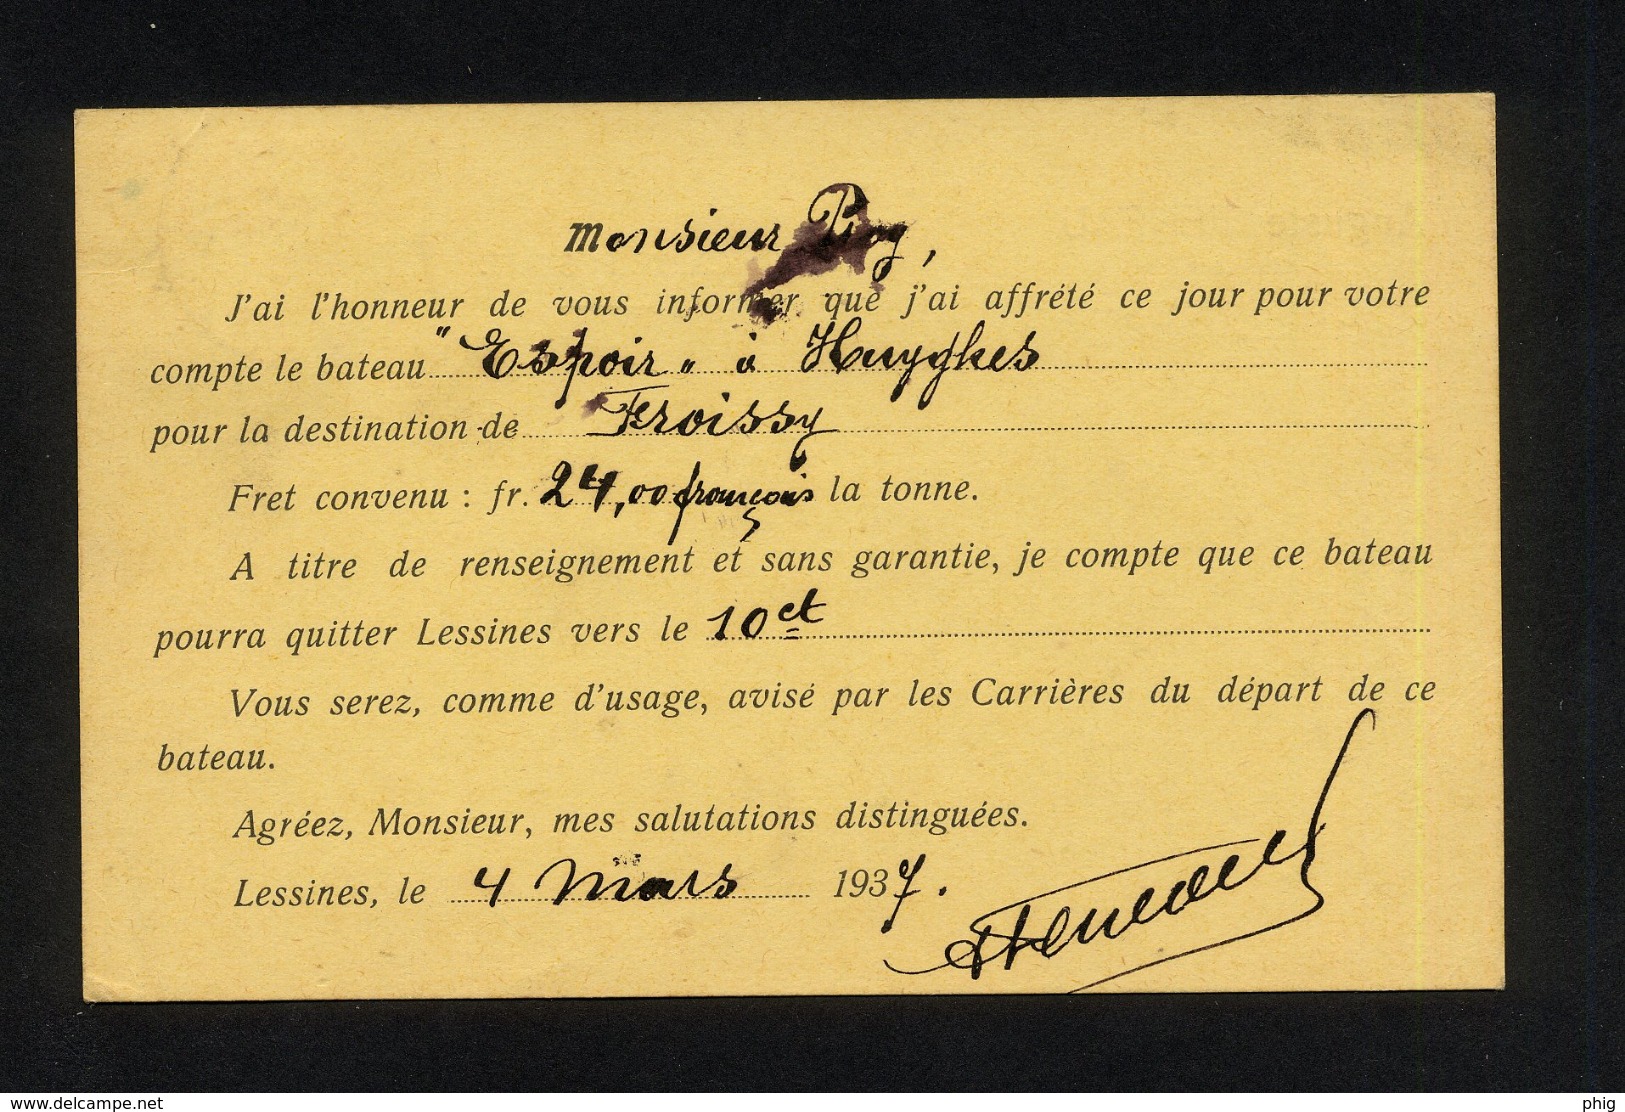 Monsieur
J'ai l'honneur de vous informer que j'ai affrété ce jour pour votre
compte le bateau "Espoir" à Huyghes
pour la destination de Froissy
Fret convenu : fr. 24,00 français la tonne.
A titre de renseignement et sans garantie, je compte que ce bateau
pourra quitter Lessines vers le 10 ct
Vous serez, comme d'usage, avisé par les Carrières du départ de ce
bateau.
Agréez, Monsieur, mes salutations distinguées.
Lessines, le 4 Mars 1937.
delcampe.net
phig